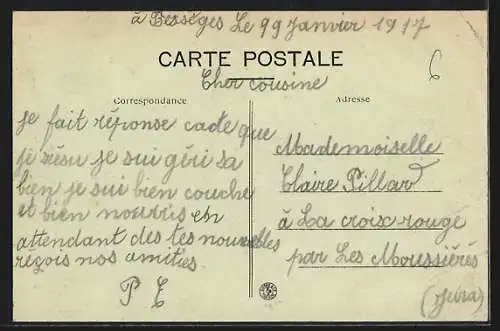 à Bessèges Le 99 Janvier 1917
CARTE POSTALE
Cher cousine
6
Correspondance
Adresse
Je fait réponse cade que
jé résu je sui géri sa
bien je sui bien couche
et bien nourris en
attendant des tes nouvelles
reçois nos amitiés
P
Mademoiselle
Claire Pillard
à La croix rouge
par Les Moussières
(Jura)